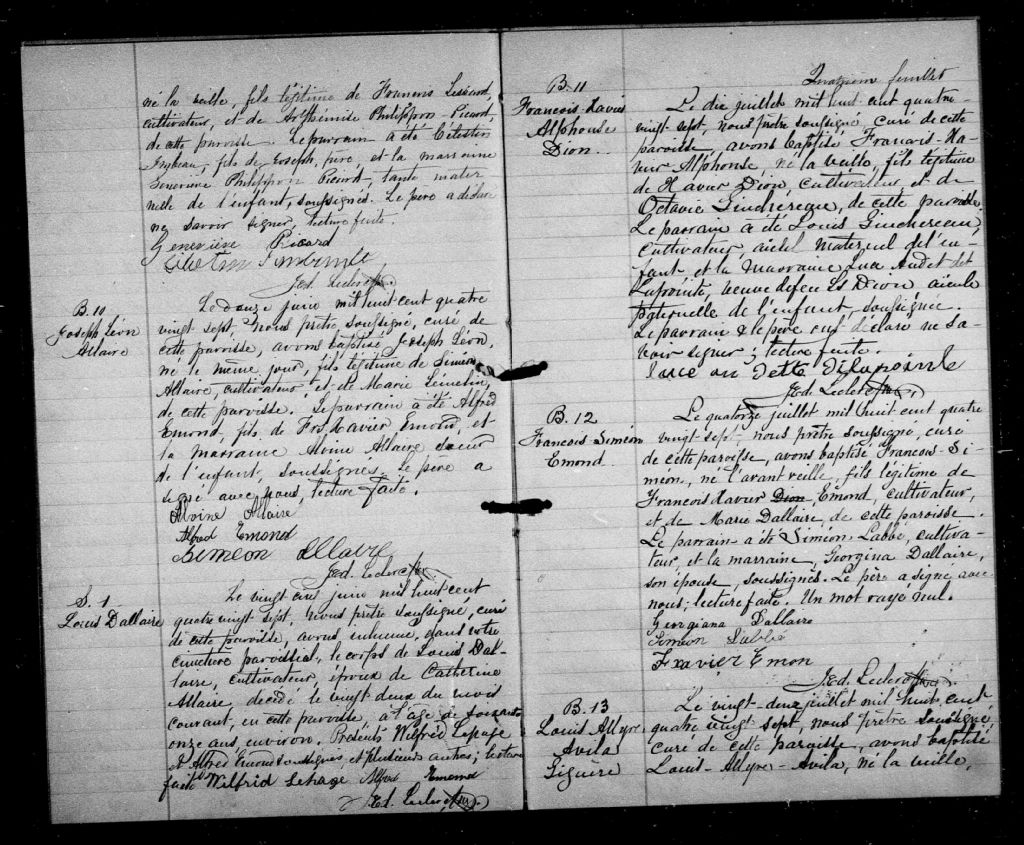 né la veille, fils légitime de
cultivateur, et de Arthemise Philippron Picard,
de cette paroisse. Le parrain a été Célestin
fils de Joseph, père, et la marraine
Geneviève Philippron Picard, tante mater
nelle de l'enfant, soussignés. Le père a déclaré
ne savoir signer, lecture faite.
Geneviève Picard
Jed. Leclerc Ptre
B. 10
Joseph Léon
Allaire
Le douze juin mil huit cent quatre
vingt sept, nous prêtre soussigné, curé de
cette paroisse, avons baptisé Joseph Léon,
né le même jour, fils légitime de Siméon
Allaire, cultivateur, et de Marie Lemelin,
de cette paroisse. Le parrain a été Alfred
Emond, fils de Frs. Xavier Emond, et
la marraine Alvine Allaire sœur
de l'enfant, soussignés. Le père a
signé avec nous, lecture faite.
Alvine Allaire
Alfred Emond
Simeon allaire
Jed. Leclerc Ptre
S. 1
Louis Dallaire
Le vingt cinq juin mil huit cent
quatre vingt sept, nous prêtre soussigné, curé
de cette paroisse, avons inhumé, dans votre
cimetière paroissial, le corps de Louis Dal-
laire, cultivateur, époux de Catherine
Allaire, décédé le vingt deux du mois
courant, en cette paroisse, à l'âge de soixante
onze ans environ. Présents Wilfred Lepage
et Alfred Emond soussignés, et plusieurs autres; lecture
faite Wilfrid Lepage Alfred Emond
Jed. Leclerc Ptre
feuillet
B. 11
François-Xavier
Alphonse
Dion.
Le dix juillet mil huit cent quatre-
vingt sept, nous prêtre soussigné, curé de cette
paroisse, avons baptisé François-Xa-
vier Alphonse, né la veille, fils légitime
de Xavier Dion, cultivateur, et de
Octavie Guichereau, de cette paroisse.
Le parrain a été Louis Guichereau,
cultivateur, aieul maternel de l'en-
fant, et la marraine Luce Audet dit
Lapointe, veuve de feu Ls Dion aieule
paternelle de l'enfant, soussignée.
Le parrain & le père ont déclaré ne sa-
voir signer; lecture faite.
luce au dette dilapointe
Jed. Leclerc Ptre
B. 12
François Siméon
Emond.
Le quatorze juillet mil huit cent quatre
vingt-sept, nous prêtre soussigné, curé
de cette paroisse, avons baptisé François-Si-
méon, né l'avant veille, fils légitime de
François Xavier Dion, Emond, cultivateur,
et de Marie Dallaire, de cette paroisse.
Le parrain a été Siméon Labbé, cultiva-
teur, et la marraine, Georgina Dallaire,
son épouse, soussignés. Le père a signé avec
nous; lecture faite. Un mot rayé nul.
Georgiana Dallaire
Simeon Labbé
Fxavier Emon
Jed. Leclerc Ptre
B. 13
Louis Allyre
Avila
Giguère
Le vingt-deux juillet mil huit cent
quatre vingt sept, nous prêtre soussigné,
curé de cette paroisse, avons baptisé
Louis-Allyre-Avila, né la veille,